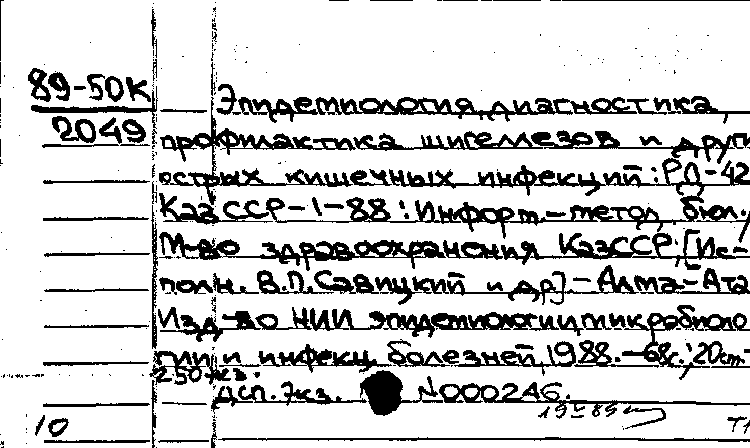 89-50К
2049
Эпидемиология, диагностика,
профилактика шигеллезов и други
острых кишечных инфекций: РД-42
КазССР-1-88: Информ.-метод. бюл.
М-во здравоохранения КазССР; [Ис-
полн. В.П. Савицкий и др]. - Алма-Ата
Изд-во НИИ эпидемиологии, микробиоло
гии и инфекц. болезней, 1988. - 68с.; 20см-
250 кз.
Дсп. Экз. N000246.
10